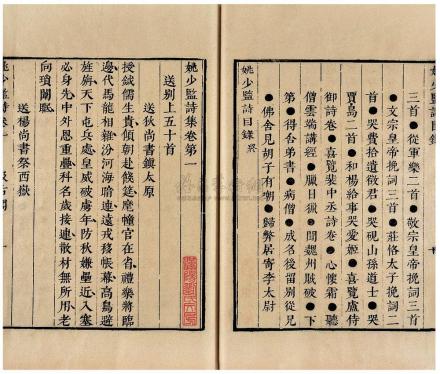 三首●從軍樂二首●敬宗皇帝挽詞三首
●文宗皇帝挽詞三首●莊恪太子挽詞二
首●哭費拾遺徵君●哭硯山孫道士●哭
賈島二首●和楊給事哭愛姬●喜覽盧侍
御詩卷●喜覽裴中丞詩卷●心懷霜●聽
僧雲端講經●臘日獵●聞魏州賊破●下
第●得台弟書●病僧●成名後留別從兄
●佛舍見胡子有嘲●歸弊居寄李太尉
姚少監詩目錄終
姚少監詩目錄
姚少監詩集卷第一
送別上五十首
送狄尚書鎮太原
授鉞儒生貴傾朝赴餞筵麾幢官在省禮樂將臨
邊代馬龍相雜汾河海暗連遠戎移帳幕高鳥避
旌旃天下屯兵處皇威破虜年防秋嫌壘近入塞
必身先中外恩重疊科名歲接連散材無所用老
向瑣闈眠
送楊尚書祭西嶽
姚少監詩卷一
汲古閣